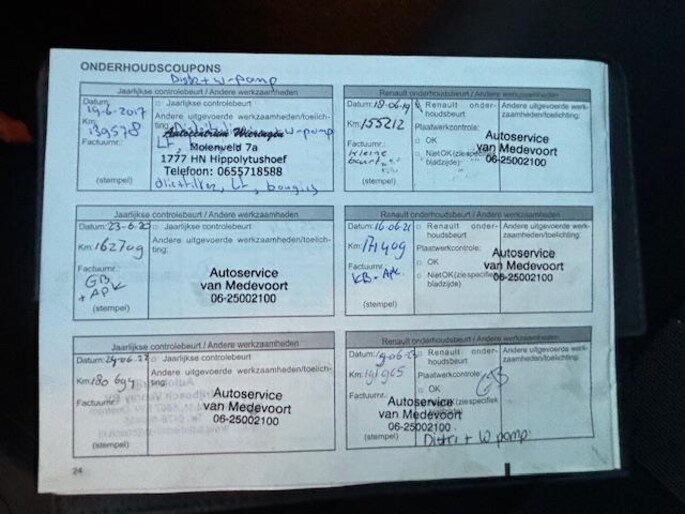 ONDERHOUDSCOUPONS
Distr + w-pomp
Jaarlijkse controlebeurt / Andere werkzaamheden
Datum: 19-6-2017
Jaarlijkse controlebeurt
Km: 139578
Andere uitgevoerde werkzaamheden/toelichting:
w-pomp
Autocentrum Wieringen
LF,
Molenveld 7a
Factuurnr.:
1777 HN Hippolytushoef
Telefoon: 0655718588
(stempel)
oliefilter, LF, bougies
Renault onderhoudsbeurt / Andere werkzaamheden
Datum: 18-06-19
Renault onder-
houdsbeurt
Andere uitgevoerde werk-
zaamheden/toelichting:
Km: 155212
Plaatwerkcontrole:
OK
Factuurnr.:
Kleine
beurt
Niet OK (zie specifieke
bladzijde)
Autoservice
van Medevoort
06-25002100
(stempel)
Jaarlijkse controlebeurt / Andere werkzaamheden
Datum: 23-6-20
Jaarlijkse controlebeurt
Km: 162709
Andere uitgevoerde werkzaamheden/toelich-
ting:
Factuurnr.:
GB
+ APK
Autoservice
van Medevoort
06-25002100
(stempel)
Renault onderhoudsbeurt / Andere werkzaamheden
Datum: 16-06-21
Renault onder-
houdsbeurt
Andere uitgevoerde werk-
zaamheden/toelichting:
Km: 171409
Plaatwerkcontrole:
OK
Factuurnr.:
KB + APK
Niet OK (zie specifieke
bladzijde)
Autoservice
van Medevoort
06-25002100
(stempel)
Jaarlijkse controlebeurt / Andere werkzaamheden
Datum: 29-06-22
Jaarlijkse controlebeurt
Km: 180699
Andere uitgevoerde werkzaamheden/toelich-
ting:
Factuurnr.:
Autoservice
van Medevoort
06-25002100
(stempel)
Renault onderhoudsbeurt / Andere werkzaamheden
Datum: 19-06-23
Renault onder-
houdsbeurt
Andere uitgevoerde werk-
zaamheden/toelichting:
Km: 191905
Plaatwerkcontrole:
GB
OK
Factuurnr.:
Autoservice
van Medevoort
06-25002100
(stempel)
Distri + W pomp
24